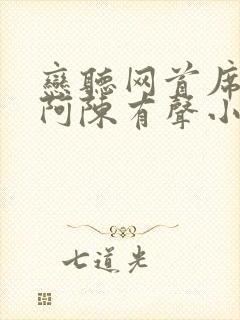 戀聽网首席
阿陳有聲小
七道光